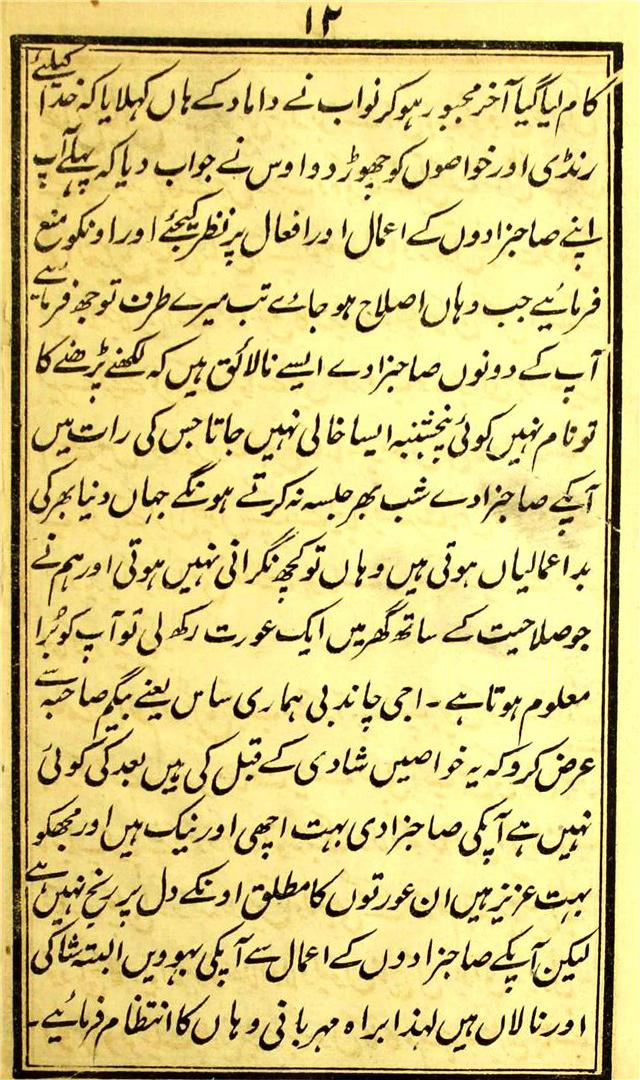 ١٢
کام لیا گیا آخر مجبور ہوکر نواب نے داماد کے ہاں کہلایا کہ خدا کیلئے
رنڈی اور خواصوں کو چھوڑ دو اوس نے جواب دیا کہ پہلے آپ
اپنے صاجزادوں کے اعمال اور افعال پر نظر کیجئے اور اونکو منع
فرمائیے جب وہاں اصلاح ہو جاے تب میرے طرف توجھ فرمائیے
آپ کے دونوں صاجزادے ایسے نالائق ہیں کہ لکھنے پڑھنے کا
تو نام نہیں کوئی پنچشنبہ ایسا خالی نہیں جاتا جس کی رات میں
آپکے صاجزادے شب بھر جلسہ نہ کرتے ہونگے جہاں دنیا بھر کی
بداعمالیاں ہوتی ہیں وہاں تو کچھ نگرانی نہیں ہوتی اور ہم نے
جو صلاحیت کے ساتھ گھر میں ایک عورت رکھ لی تو آپ کو بُرا
معلوم ہوتا ہے ۔ اجی چاند بی ہماری ساس یعنے بیگم صاحبہ سے
عرض کرو کہ یہ خواصیں شادی کے قبل کی ہیں بعد کی کوئی
نہیں ہے آپکی صاجزادی بہت اچھی اور نیک ہیں اور مجھکو
بہت عزیز ہیں ان عورتوں کا مطلق اونکے دل پر رنج نہیں ہے
لیکن آپکے صاجزادوں کے اعمال سے آپکی بہوویں البتہ شاکی
اور نالاں ہیں لہذا براہ مہربانی وہاں کا انتظام فرمائیے ۔